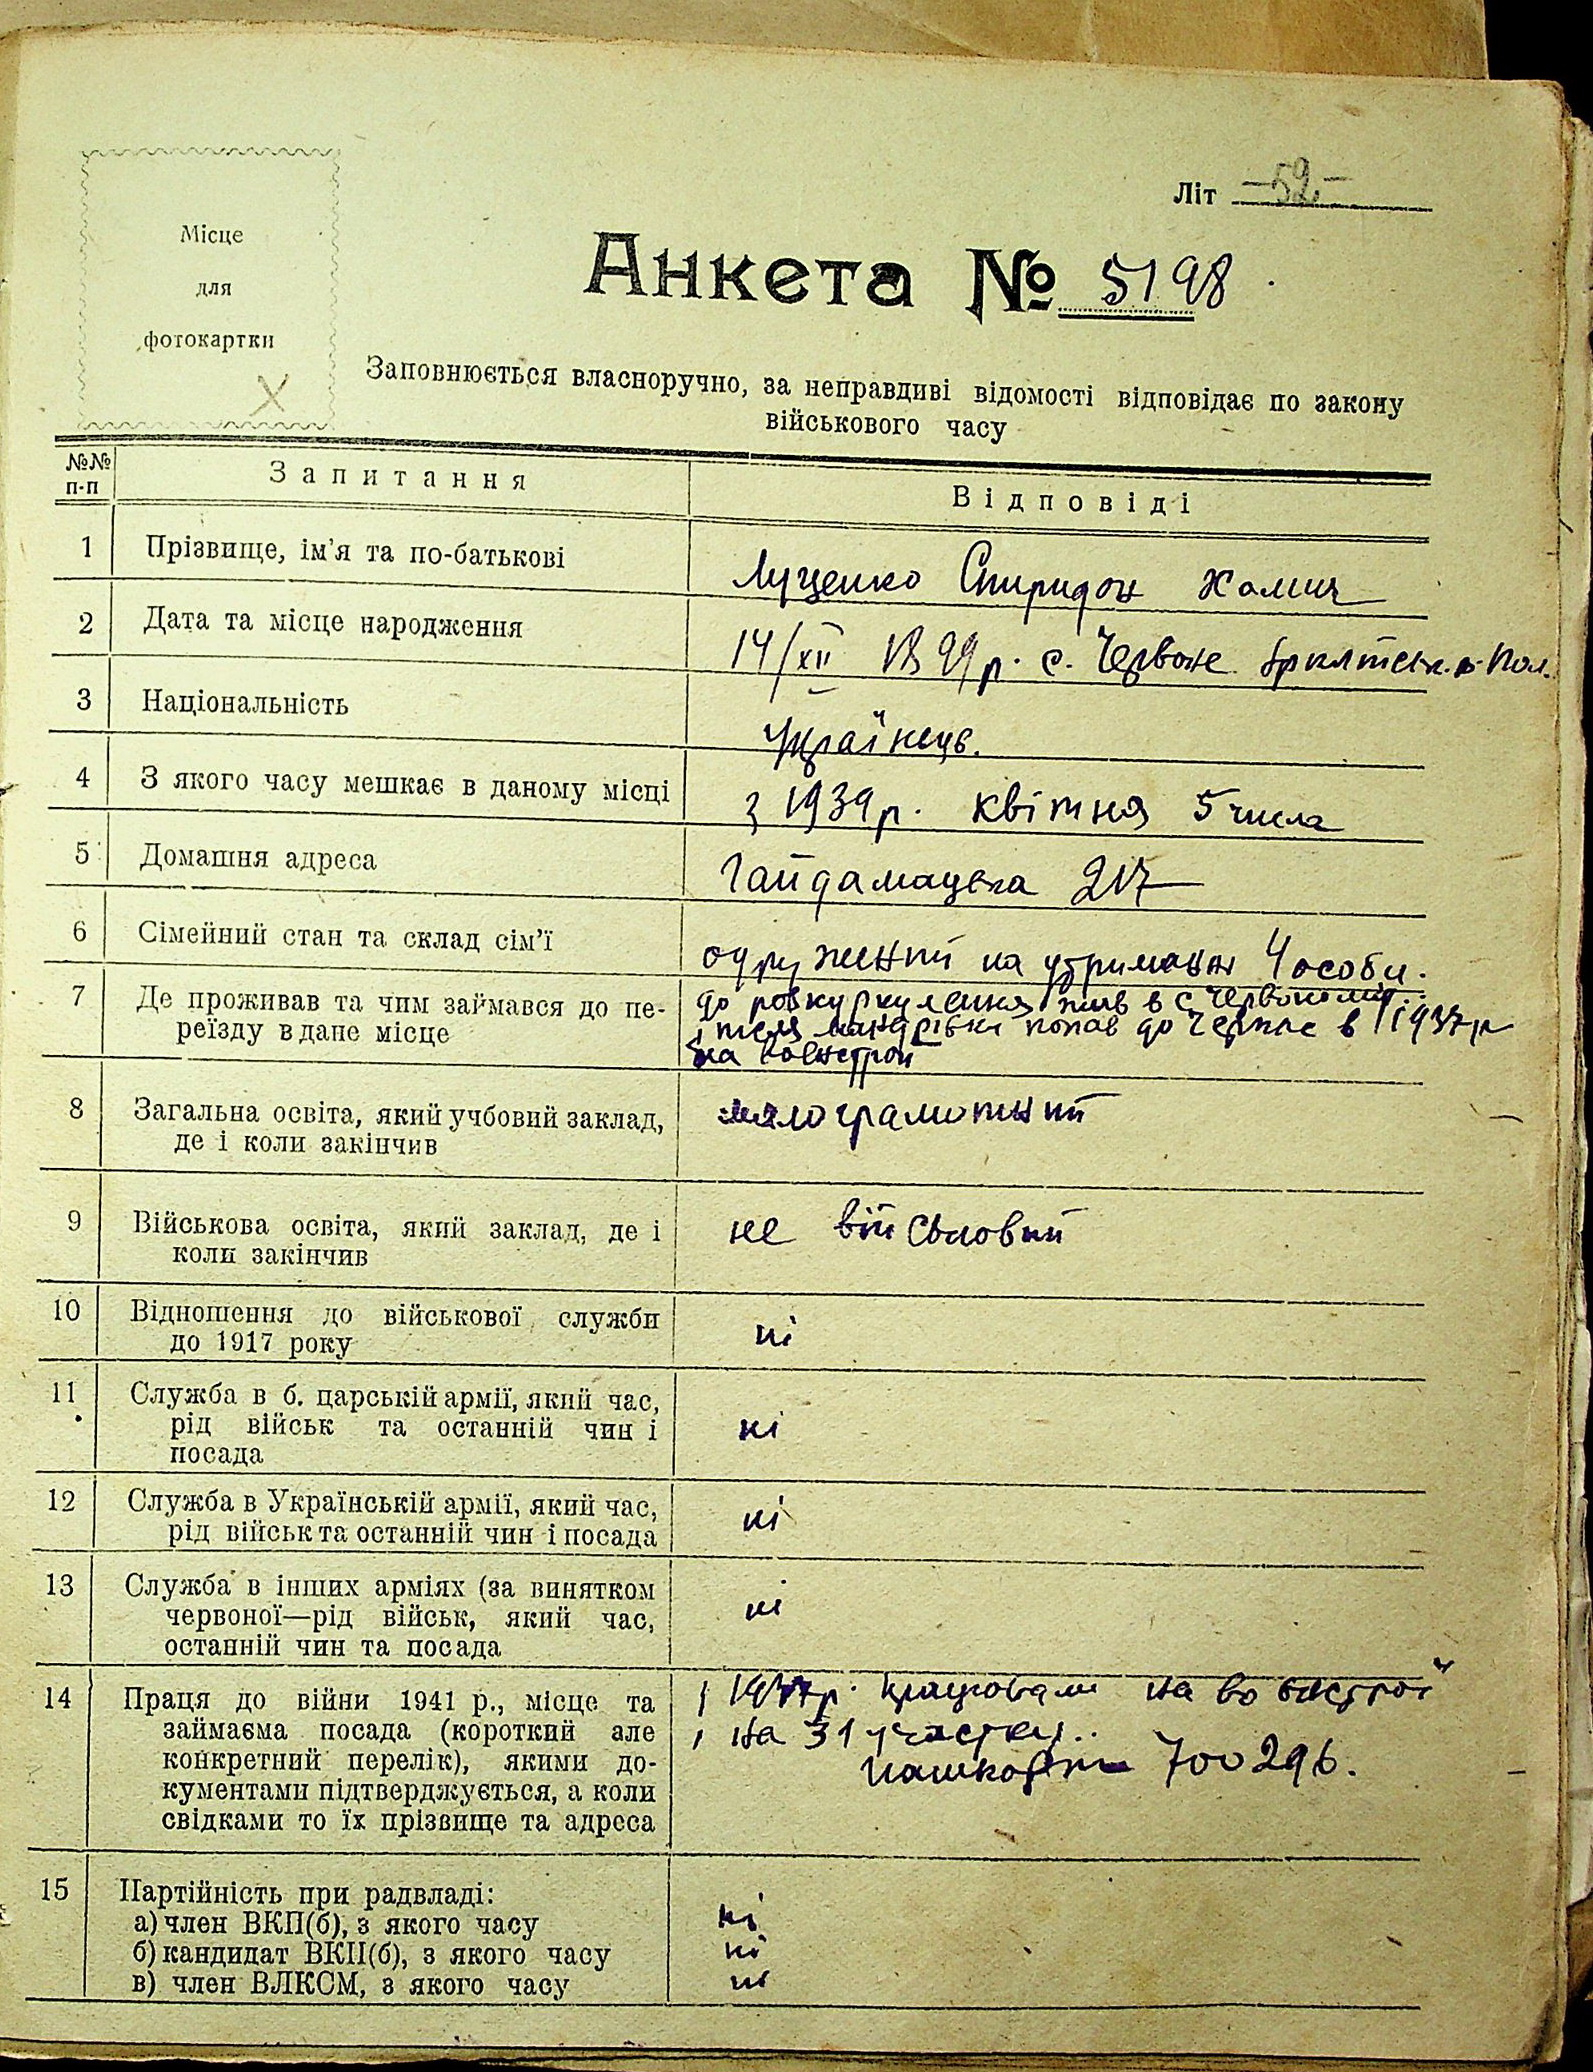 Літ -52-
Місце
для
фотокартки
Анкета № 5198
Заповнюється власноручно, за неправдиві відомості відповідає по закону
військового часу
№№ п-п Запитання Відповіді
1 Прізвище, ім'я та по-батькові Луценко Спиридон Хомич
2 Дата та місце народження 14/XII 1899 р. с. Червоне
3 Національність Українець.
4 З якого часу мешкає в даному місці з 1939 р. квітня 5 числа
5 Домашня адреса Гайдамацька 217
6 Сімейний стан та склад сім'ї одружений на утриман 4 особи.
7 Де проживав та чим займався до пе- до розкуркулення жив в с Червоному
реїзду в дане місце попав до в 1937 р
на
8 Загальна освіта, який учбовий заклад, малограмотний
де і коли закінчив
9 Військова освіта, який заклад, де і не військовий
коли закінчив
10 Відношення до військової служби ні
до 1917 року
11 Служба в б. царській армії, який час,
рід військ та останній чин і ні
посада
12 Служба в Українській армії, який час, ні
рід військ та останній чин і посада
13 Служба в інших арміях (за винятком ні
червоної—рід військ, який час,
останній чин та посада
14 Праця до війни 1941 р., місце та на
займаєма посада (короткий але на 31 участку.
конкретний перелік), якими до- 700296.
кументами підтверджується, а коли
свідками то їх прізвище та адреса
15 Партійність при радвладі:
а) член ВКП(б), з якого часу ні
б) кандидат ВКП(б), з якого часу ні
в) член ВЛКСМ, з якого часу ні